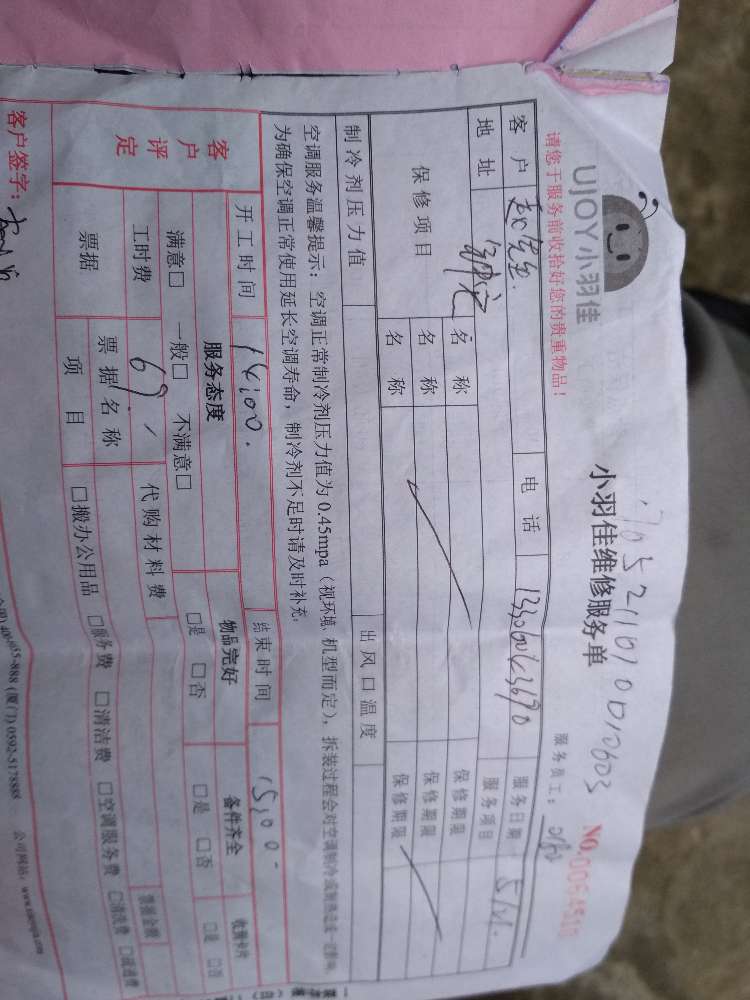 UJOY小羽佳
小羽佳维修服务单
请您于服务前收拾好您的贵重物品！
服务员工：
NO.
客户
电话
服务日期
5/21.
地址
服务项目
保修项目
名称
保修期限
名称
保修期限
名称
保修期限
制冷剂压力值
出风口温度
空调服务温馨提示：空调正常制冷剂压力值为0.45mpa（视环境、机型而定），拆装过程会对空调制冷
为确保空调正常使用延长空调寿命，制冷剂不足时请及时补充。
开工时间
14:00.
结束时间
15:00
客户评定
服务态度
物品完好
备件齐全
满意□ 一般□ 不满意□
□是 □否
□是 □否
□是 □否
工时费
69
代购材料费
票据
票据名称
票据金额
项目
□搬办公用品 □服务费 □清洁费 □空调服务费 □清洗费 □疏通费
客户签字：
(厦门) 0592-5178888 公司网站：